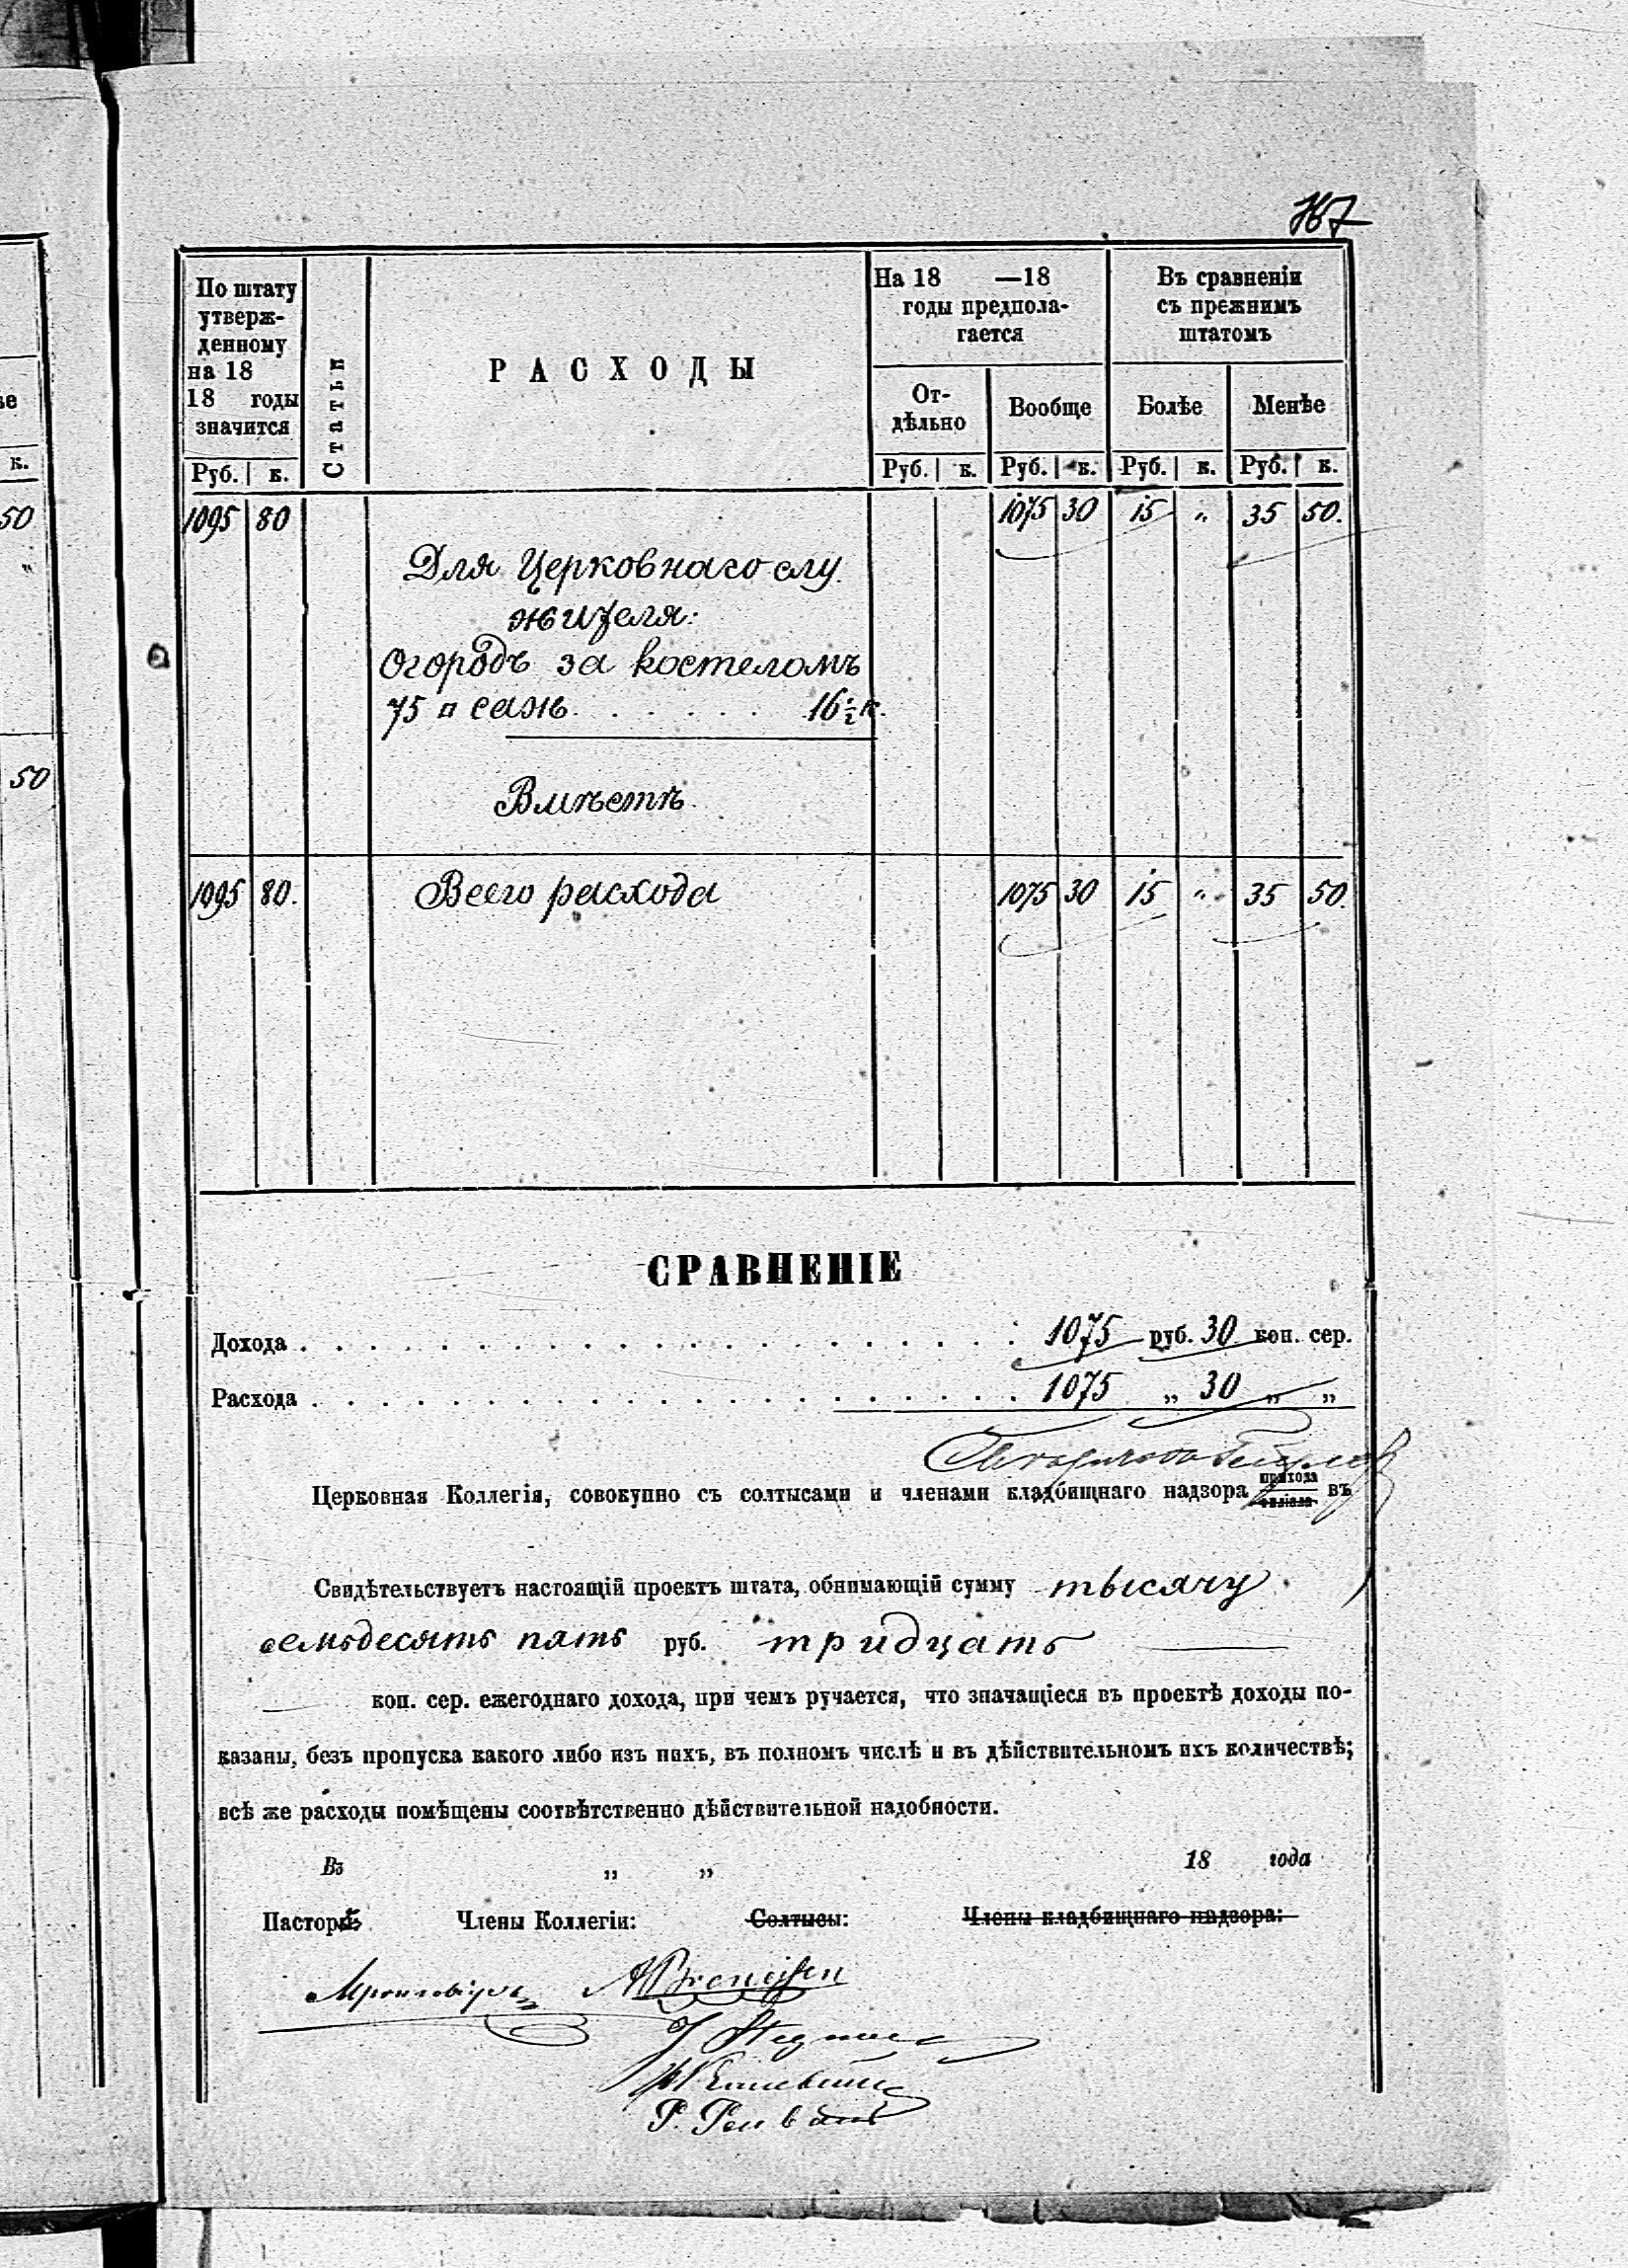 167
По штату утверж-
денному
на 18
18 годы
значится
Статьи
РАСХОДЫ
На 18 —18
годы предпола-
гается
Въ сравненіи
съ прежнимъ
штатомъ
От-
дѣльно
Вообще
Болѣе
Менѣе
Руб. к. Руб. к. Руб. к. Руб. к. Руб. к.
1095 80 1075 30 15 „ 35 50.
Для Церковнаго слу
жителя:
Огородъ за костеломъ
75 □ саж. . . . . . 16½ к.
Вмѣстѣ
1095 80. Всего расхода 1075 30 15 „ 35 50.
СРАВНЕНІЕ
Дохода . . . . . . . . . . . . . . . . . . . . 1075 руб. 30 коп. сер.
Расхода . . . . . . . . . . . . . . . . . . . . 1075 „ 30 „ „
Церковная Коллегія, совокупно съ солтысами и членами кладбищнаго надзора прихода филіала въ
Свидѣтельствуетъ настоящій проектъ штата, обнимающій сумму тысячу
семьдесятъ пять руб. тридцать
коп. сер. ежегоднаго дохода, при чемъ ручается, что значащіеся въ проектѣ доходы по-
казаны, безъ пропуска какого либо изъ нихъ, въ полномъ числѣ и въ дѣйствительномъ ихъ количествѣ;
всѣ же расходы помѣщены соотвѣтственно дѣйствительной надобности.
Въ „ „ 18 года
Пасторъ Члены Коллегіи: Солтысы: Члены кладбищнаго надзора:
к.
50
„
50